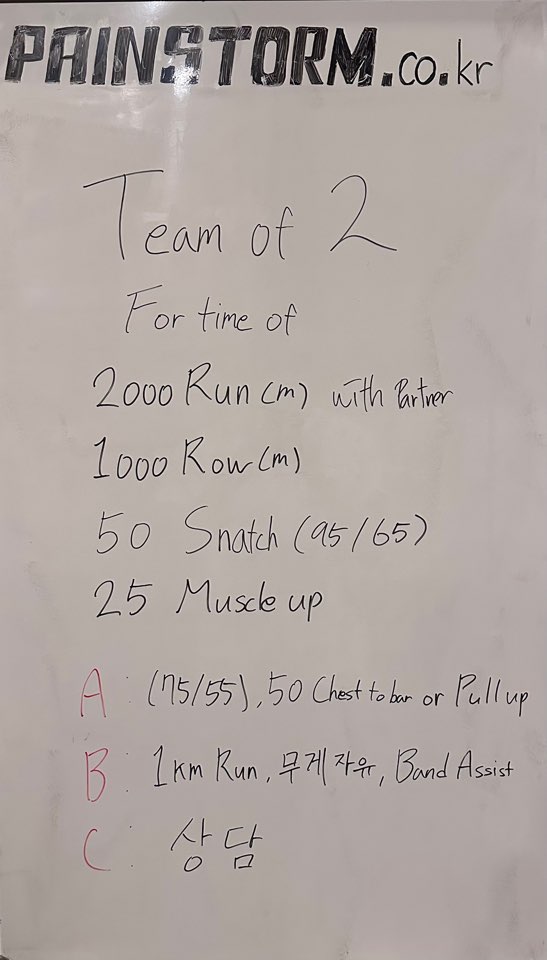 PAINSTORM.co.kr
Team of 2
For time of
2000 Run (m) with Partner
1000 Row (m)
50 Snatch (95/65)
25 Muscle up
A : (75/55), 50 Chest to bar or Pull up
B : 1km Run, 무게 자유, Band Assist
C : 상담